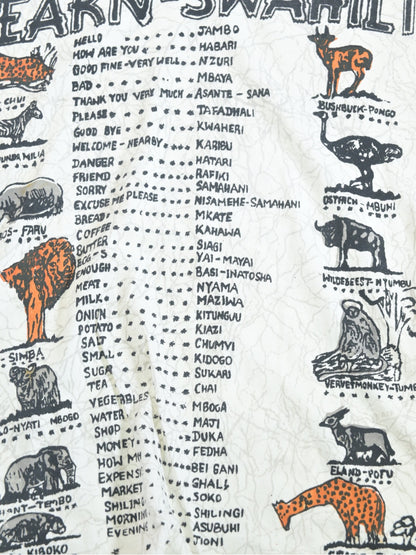 EARN-SWAHILI
HELLO JAMBO
HOW ARE YOU HABARI
GOOD FINE-VERY WELL NZURI
BAD MBAYA
THANK YOU VERY MUCH ASANTE-SANA
PLEASE TAFADHALI
GOOD BYE KWAHERI
WELCOME-NEARBY KARIBU
DANGER HATARI
FRIEND RAFIKI
SORRY SAMAHANI
EXCUSE ME PLEASE NISAMEHE-SAMAHANI
BREAD MKATE
COFFEE KAHAWA
BUTTER SIAGI
EGG-S YAI-MAYAI
ENOUGH BASI-INATOSHA
MEAT NYAMA
MILK MAZIWA
ONION KITUNGUU
POTATO KIAZI
SALT CHUMVI
SMAL KIDOGO
SUGR SUKARI
TEA CHAI
VEGETABLES MBOGA
WATER MAJI
SHOP DUKA
MONEY FEDHA
HOW MH BEI GANI
EXPENSI GHALI
MARKET SOKO
SHILING SHILINGI
MORNIN ASUBUHI
EVENING JIONI
CHUI
PUNDA MILIA
OS-FARU
SIMBA
LO-NYATI MBOGO
PHANT-TEMBO
KIBOKO
BUSHBUCK-PONGO
OSTRICH-MBUNI
WILDEBEEST-NYUMBU
VERVETMONKEY-TUMB
ELAND-POFU